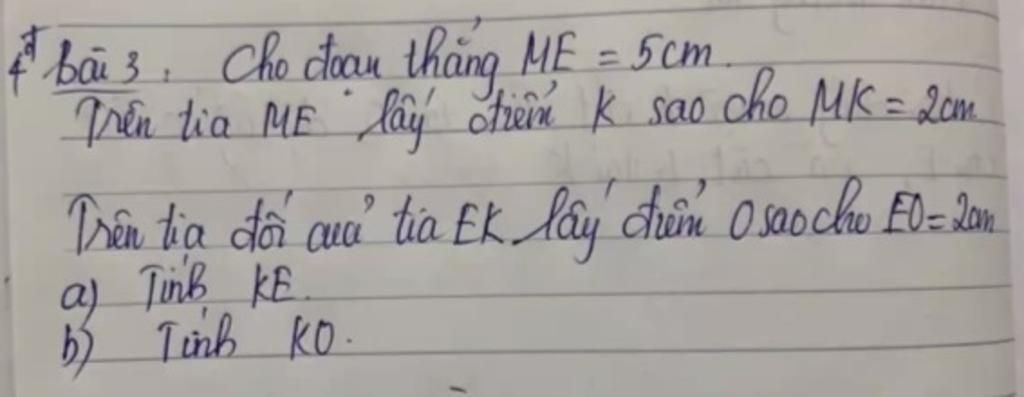 4đ Bài 3. Cho đoạn thẳng ME = 5cm.
Trên tia ME lấy điểm K sao cho MK = 2cm
Trên tia đối của tia EK lấy điểm O sao cho EO = 2cm
a) Tính KE.
b) Tính KO.